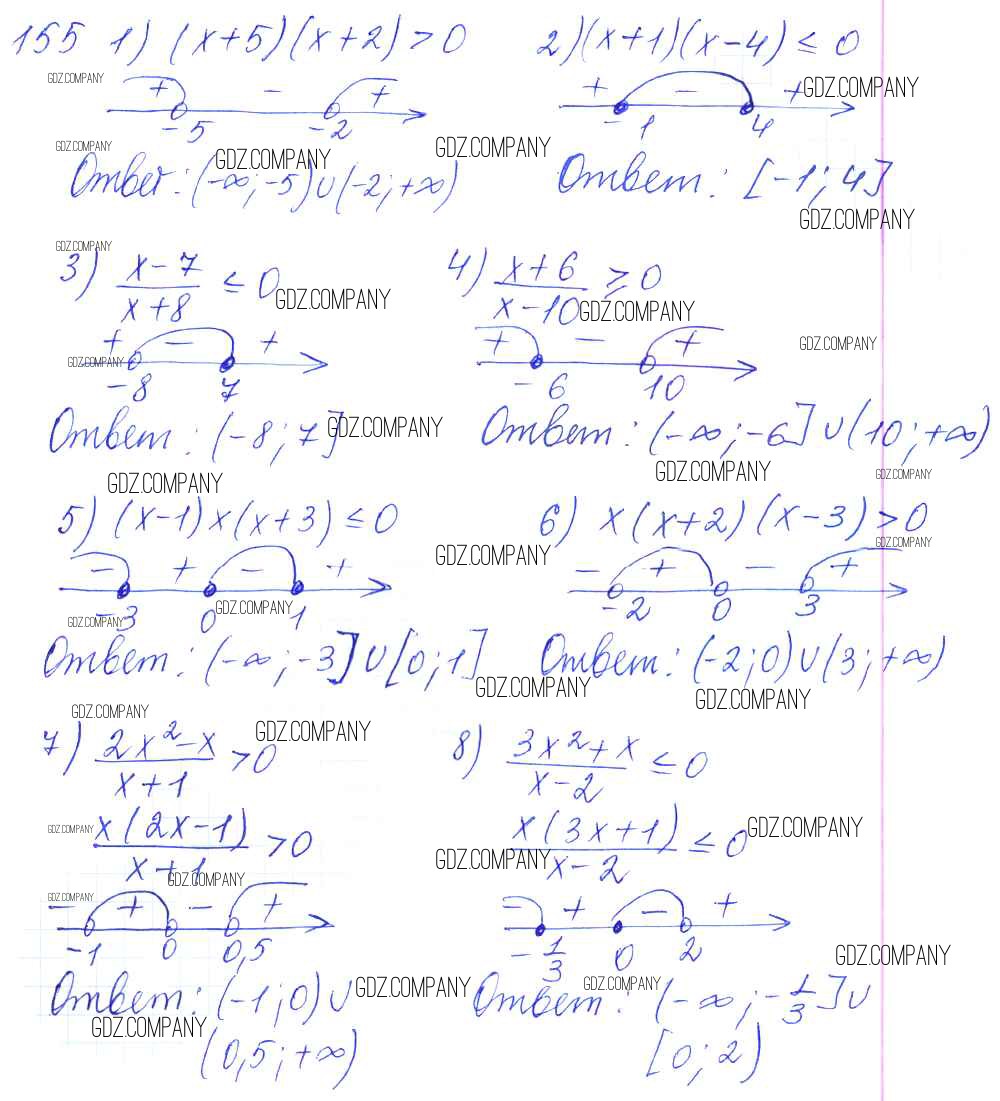 155 1) (x+5)(x+2)>0
GDZ.COMPANY
+ - +
-5 -2
GDZ.COMPANY
GDZ.COMPANY
Ответ: (-∞;-5)∪(-2;+∞)
2)(x+1)(x-4)≤0
+ - + GDZ.COMPANY
-1 4
GDZ.COMPANY
Ответ: [-1;4]
GDZ.COMPANY
GDZ.COMPANY
3) (x-7)/(x+8) ≤0
GDZ.COMPANY
+ - +
GDZ.COMPANY
-8 7
Ответ: (-8;7]
GDZ.COMPANY
GDZ.COMPANY
4) (x+6)/(x-10) ≥0
GDZ.COMPANY
+ - +
GDZ.COMPANY
-6 10
Ответ: (-∞;-6]∪(10;+∞)
GDZ.COMPANY
GDZ.COMPANY
5) (x-1)x(x+3)≤0
- + - +
-3 0 1
GDZ.COMPANY
GDZ.COMPANY
Ответ: (-∞;-3]∪[0;1]
GDZ.COMPANY
6) x(x+2)(x-3)>0
GDZ.COMPANY
GDZ.COMPANY
- + - +
-2 0 3
Ответ: (-2;0)∪(3;+∞)
GDZ.COMPANY
GDZ.COMPANY
GDZ.COMPANY
7) (2x²-x)/(x+1) >0
GDZ.COMPANY
x(2x-1)/(x+1) >0
GDZ.COMPANY
GDZ.COMPANY
- + - +
-1 0 0,5
Ответ: (-1;0)∪
GDZ.COMPANY
GDZ.COMPANY
(0,5;+∞)
8) (3x²+x)/(x-2) ≤0
x(3x+1)/(x-2) ≤0
GDZ.COMPANY
GDZ.COMPANY
- + - +
-1/3 0 2
GDZ.COMPANY
GDZ.COMPANY
Ответ: (-∞;-1/3]∪
[0;2)